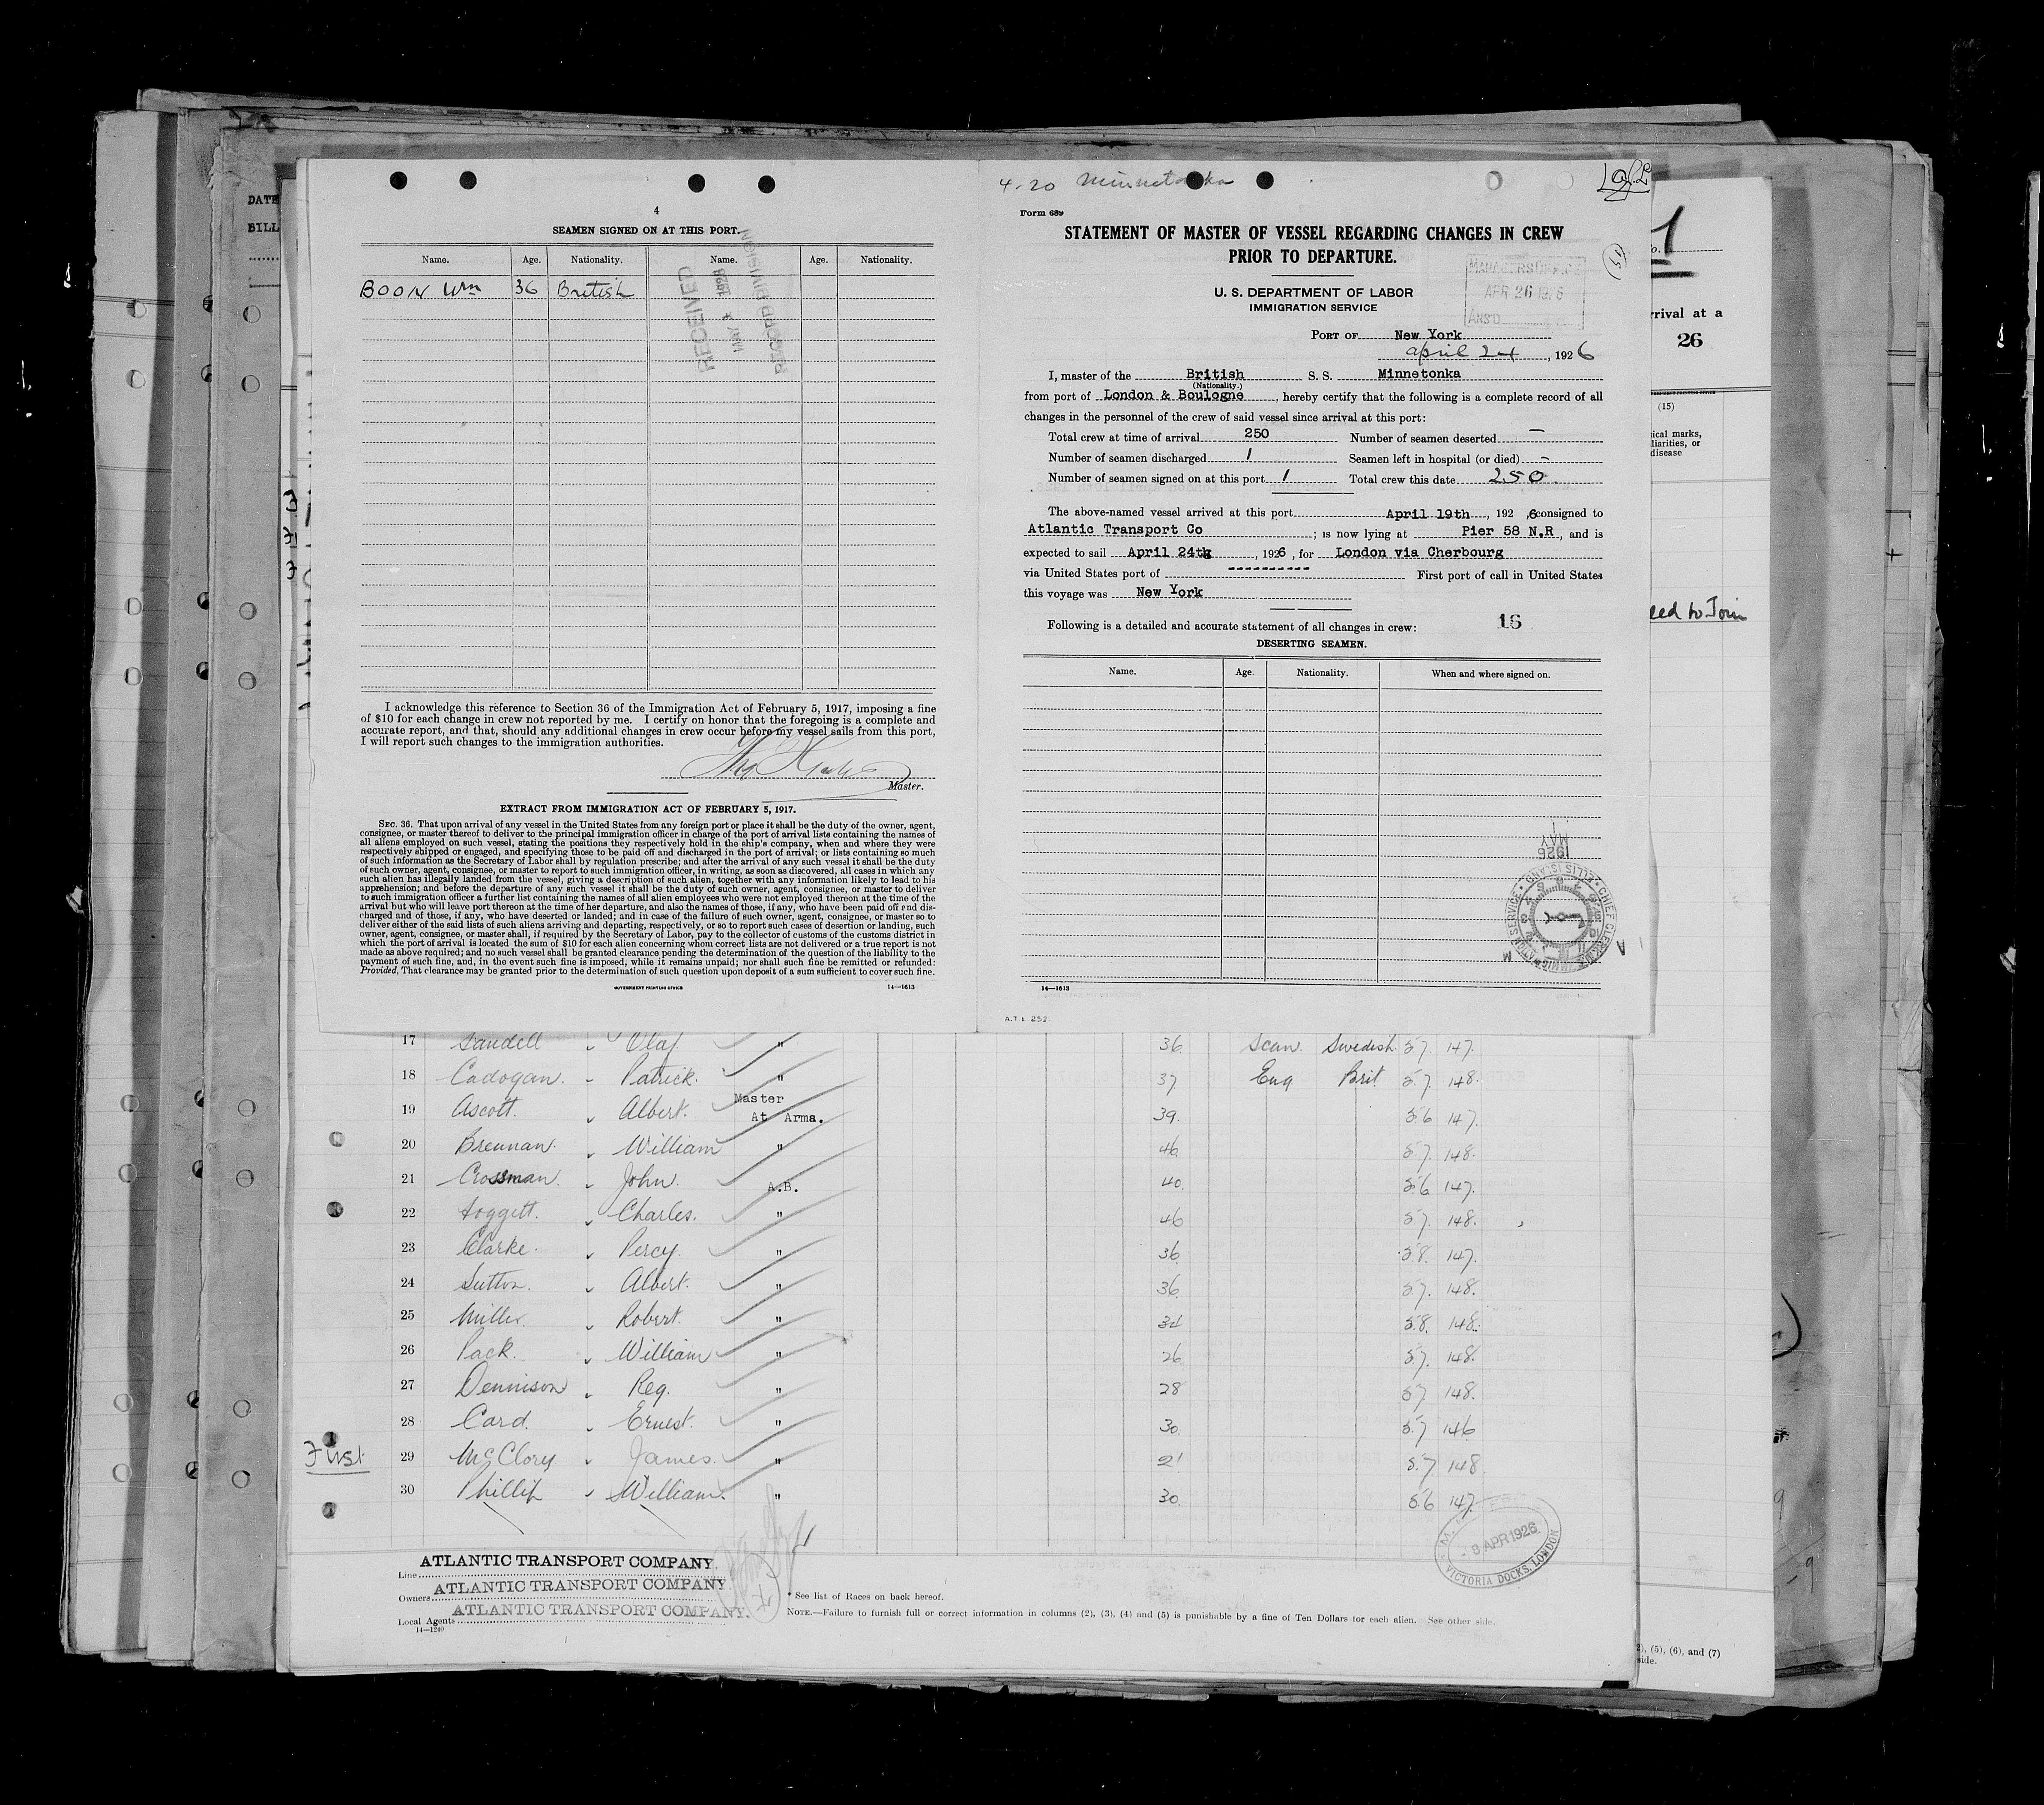 4
SEAMEN SIGNED ON AT THIS PORT.
Name. Age. Nationality. Name. Age. Nationality.
BOON Wm 36 British
RECEIVED
MAY 1926
RECORD DIVISION
I acknowledge this reference to Section 36 of the Immigration Act of February 5, 1917, imposing a fine
of $10 for each change in crew not reported by me. I certify on honor that the foregoing is a complete and
accurate report, and that, should any additional changes in crew occur before my vessel sails from this port,
I will report such changes to the immigration authorities.
Master.
EXTRACT FROM IMMIGRATION ACT OF FEBRUARY 5, 1917.
SEC. 36. That upon arrival of any vessel in the United States from any foreign port or place it shall be the duty of the owner, agent,
consignee, or master thereof to deliver to the principal immigration officer in charge of the port of arrival lists containing the names of
all aliens employed on such vessel, stating the positions they respectively hold in the ship's company, when and where they were
respectively shipped or engaged, and specifying those to be paid off and discharged in the port of arrival; or lists containing so much
of such information as the Secretary of Labor shall by regulation prescribe; and after the arrival of any such vessel it shall be the duty
of such owner, agent, consignee, or master to report to such immigration officer, in writing, as soon as discovered, all cases in which any
such alien has illegally landed from the vessel, giving a description of such alien, together with any information likely to lead to his
apprehension; and before the departure of any such vessel it shall be the duty of such owner, agent, consignee, or master to deliver
to such immigration officer a further list containing the names of all alien employees who were not employed thereon at the time of the
arrival but who will leave port thereon at the time of her departure, and also the names of those, if any, who have been paid off and dis-
charged and of those, if any, who have deserted or landed; and in case of the failure of such owner, agent, consignee, or master so to
deliver either of the said lists of such aliens arriving and departing, respectively, or so to report such cases of desertion or landing, such
owner, agent, consignee, or master shall, if required by the Secretary of Labor, pay to the collector of customs of the customs district in
which the port of arrival is located the sum of $10 for each alien concerning whom correct lists are not delivered or a true report is not
made as above required; and no such vessel shall be granted clearance pending the determination of the question of the liability to the
payment of such fine, and, in the event such fine is imposed, while it remains unpaid; nor shall such fine be remitted or refunded:
Provided, That clearance may be granted prior to the determination of such question upon deposit of a sum sufficient to cover such fine.
GOVERNMENT PRINTING OFFICE 14—1613
4-20 Minnetonka
Form 689
STATEMENT OF MASTER OF VESSEL REGARDING CHANGES IN CREW
PRIOR TO DEPARTURE.
U. S. DEPARTMENT OF LABOR
IMMIGRATION SERVICE
APR 26 1926
ANS'D
PORT OF New York
April 24, 1926
I, master of the British S. S. Minnetonka
(Nationality.)
from port of London & Boulogne, hereby certify that the following is a complete record of all
changes in the personnel of the crew of said vessel since arrival at this port:
Total crew at time of arrival 250 Number of seamen deserted —
Number of seamen discharged 1 Seamen left in hospital (or died) -
Number of seamen signed on at this port 1 Total crew this date 250
The above-named vessel arrived at this port April 19th, 192 ,6consigned to
Atlantic Transport Co ; is now lying at Pier 58 N.R, and is
expected to sail April 24th, 1926, for London via Cherbourg
via United States port of ---------- First port of call in United States
this voyage was New York
Following is a detailed and accurate statement of all changes in crew: 16
DESERTING SEAMEN.
Name. Age. Nationality. When and where signed on.
MAY 1
1926
CHIEF CLERK IMMIGRATION SERVICE ELLIS ISLAND
14—1613
A.T.L 252
DATE
BILL
No. 1
rrival at a
26
(15)
ical marks,
liarities, or
disease
17 Sandell Olaf " 36. Scan. Swedish 5.7. 147.
18 Cadogan. Patrick. " 37 Eng Brit 5.7. 148.
19 Ascott. Albert. Master At Arma. 39. 5.6 147.
20 Brennan. William " 46 5.7. 148.
21 Crossman. John. A.B. 40. 5.6 147.
22 Foggett. Charles. " 46 5.7. 148.
23 Clarke. Percy. " 36 5.8. 147.
24 Sutton. Albert. " 36. 5.7. 148.
25 Miller. Robert. " 5.8. 148.
26 Pack. William " 26 5.7. 148.
27 Dennison Reg. " 28 5.7 148.
28 Card. Ernest. " 30. 5.7 146
First 29 McClory James. " 21 5.7 148
30 Phillip William. " 30. 5.6 147.
8 APR 1926
VICTORIA DOCKS. LONDON
Line ATLANTIC TRANSPORT COMPANY.
Owners ATLANTIC TRANSPORT COMPANY.
Local Agents ATLANTIC TRANSPORT COMPANY.
14—1240
* See list of Races on back hereof.
NOTE.—Failure to furnish full or correct information in columns (2), (3), (4) and (5) is punishable by a fine of Ten Dollars for each alien. See other side.
(5), (6), and (7)
side.